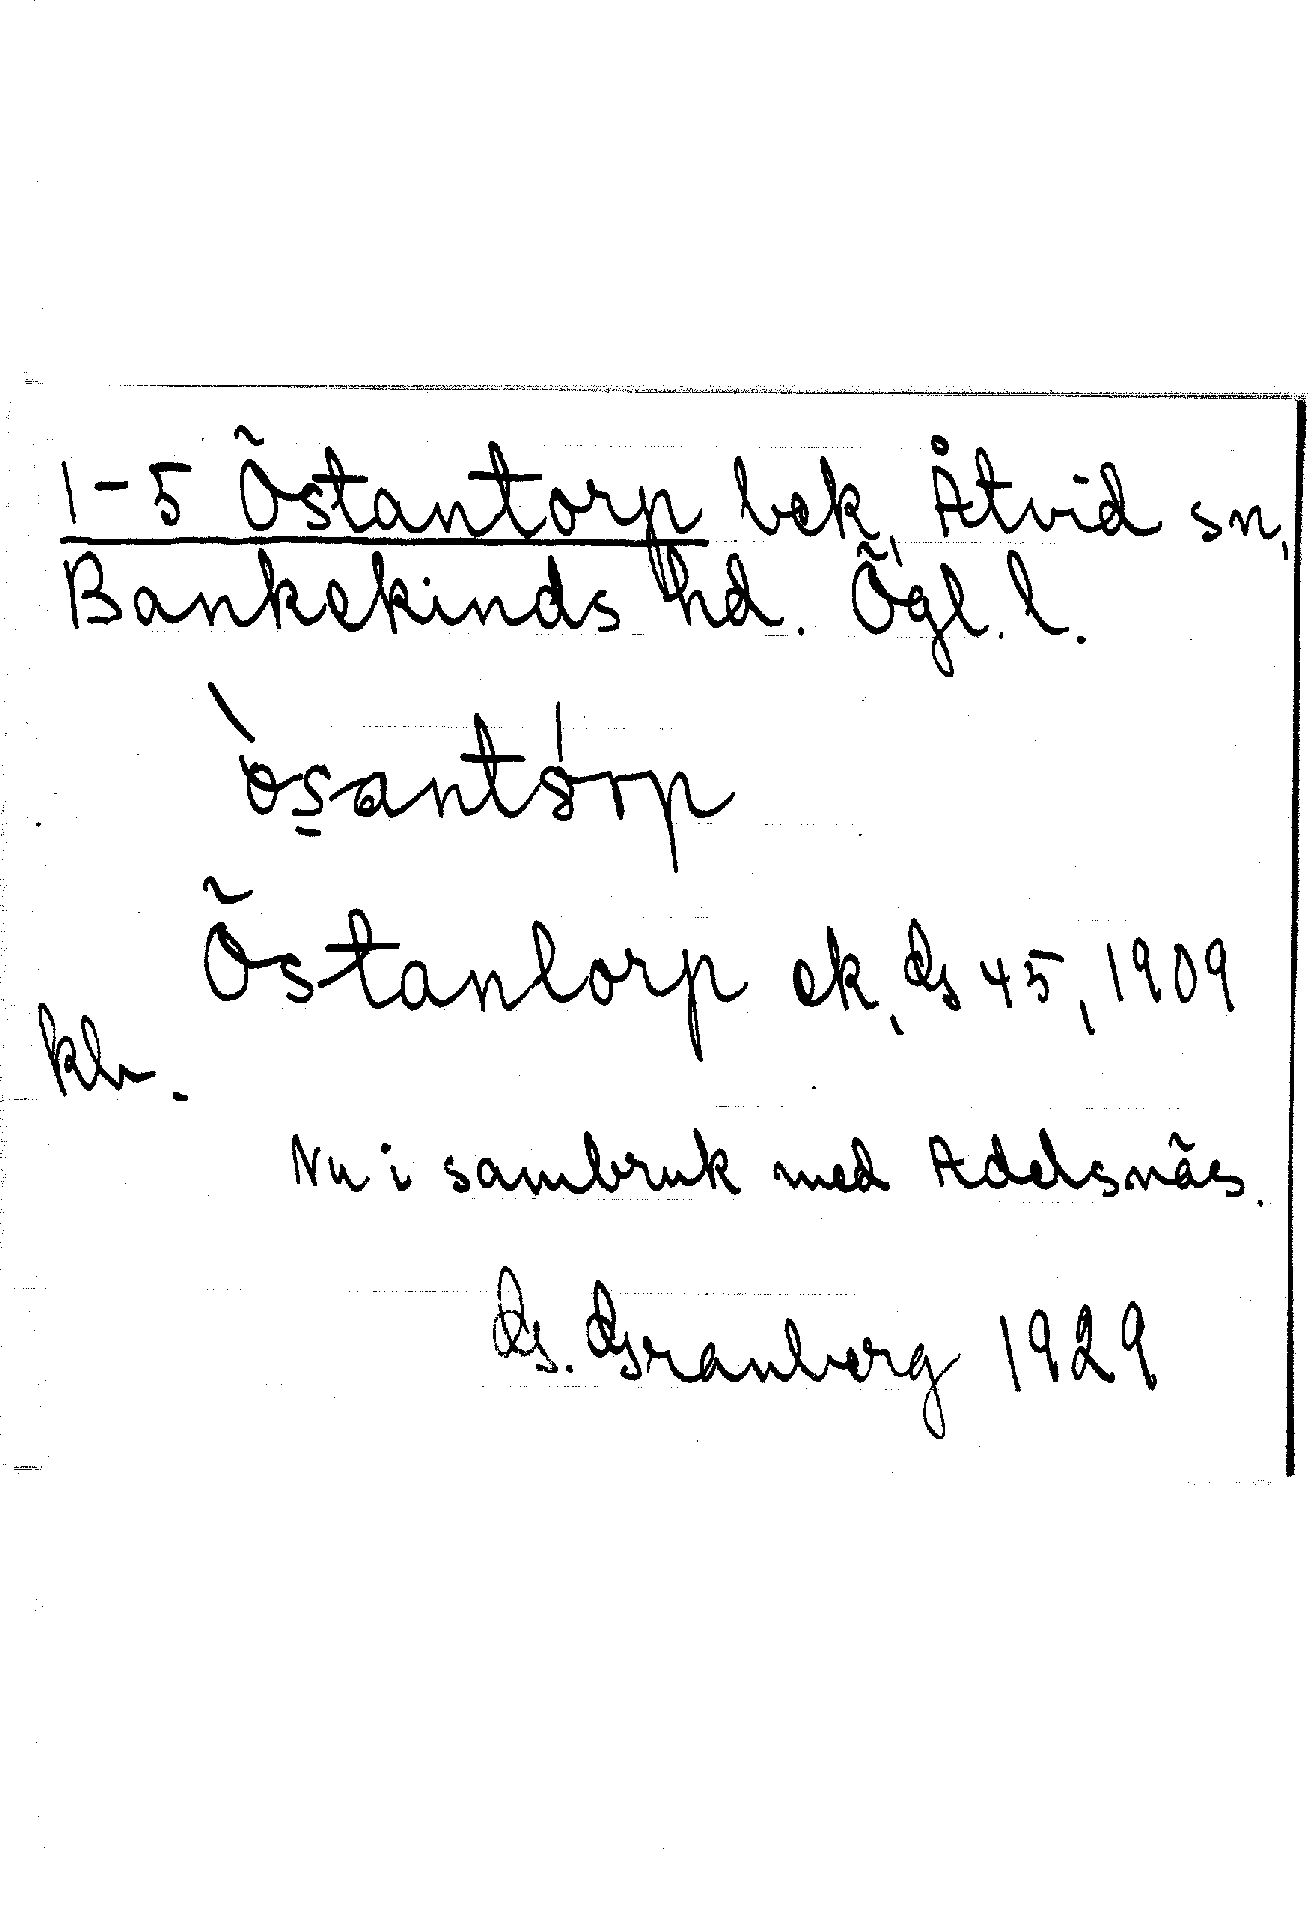 1-5 Östantorp bek, Åtvid sn,
Bankekinds hd. Ögl. l.
òsantórp
Östantorp ek, Gs 45, 1909
kh.
Nu i sambruk med Adelsnäs.
G. Granberg 1929